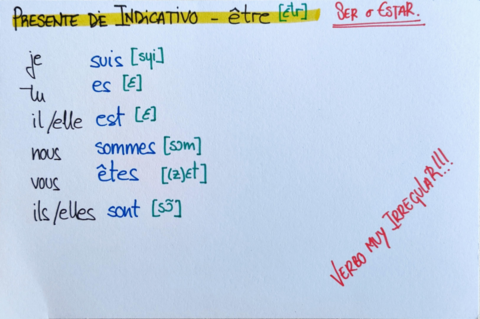 PRESENTE DE INDICATIVO - être [ɛtr] SER o ESTAR.
je suis [sɥi]
tu es [ɛ]
il/elle est [ɛ]
nous sommes [sɔm]
vous êtes [(z)ɛt]
ils/elles sont [sɔ̃]
VERBO MUY IRREGULAR!!!